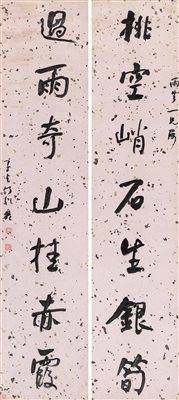 排空峭石生銀筍
過雨奇山挂赤霞